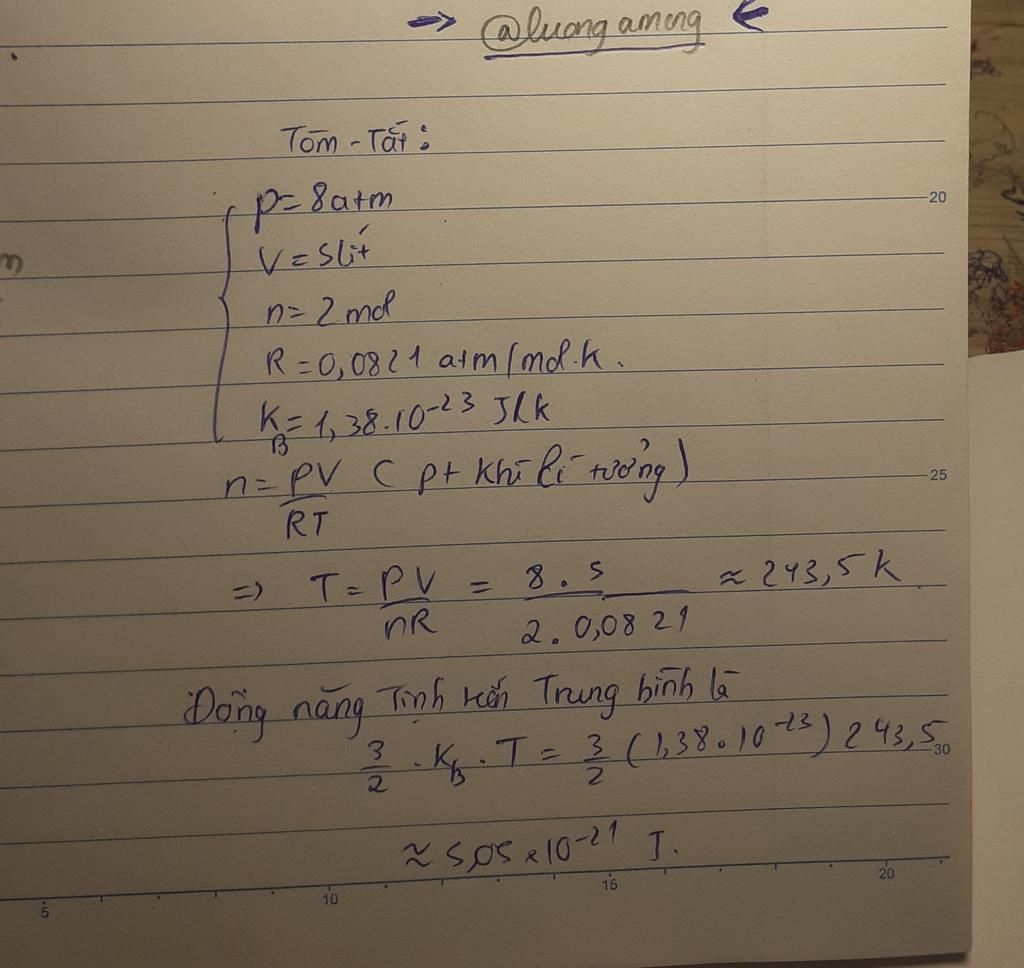 → @luongameng ←
Tóm - Tắt:
P = 8 atm
V = 5 lít
n = 2 mol
R = 0,0821 atm/mol.k.
K_B = 1,38.10^-23 J/k
n = PV/RT (pt khí lí tưởng)
=> T = PV/nR = 8.5/2.0,0821 ≈ 243,5 k
Động năng Tịnh tiến Trung bình là
3/2 . K_B . T = 3/2 (1,38.10^-23) 243,5
≈ 5,05 × 10^-21 J.
20
25
30
5 10 15 20